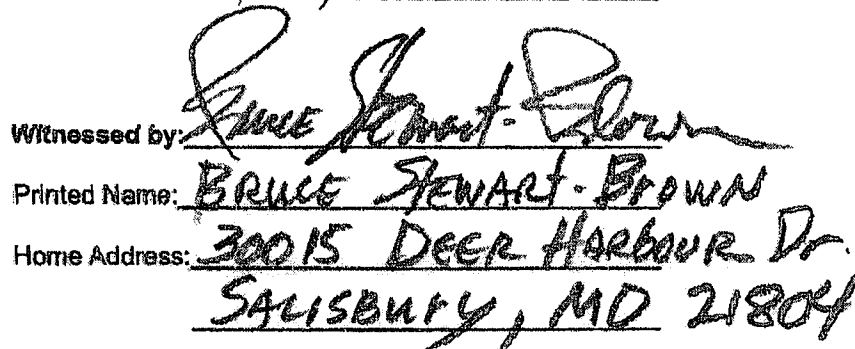 Witnessed by: Bruce Stewart-Brown
Printed Name: BRUCE STEWART-BROWN
Home Address: 30015 DEER HARBOUR Dr.
SALISBURY, MD 21804